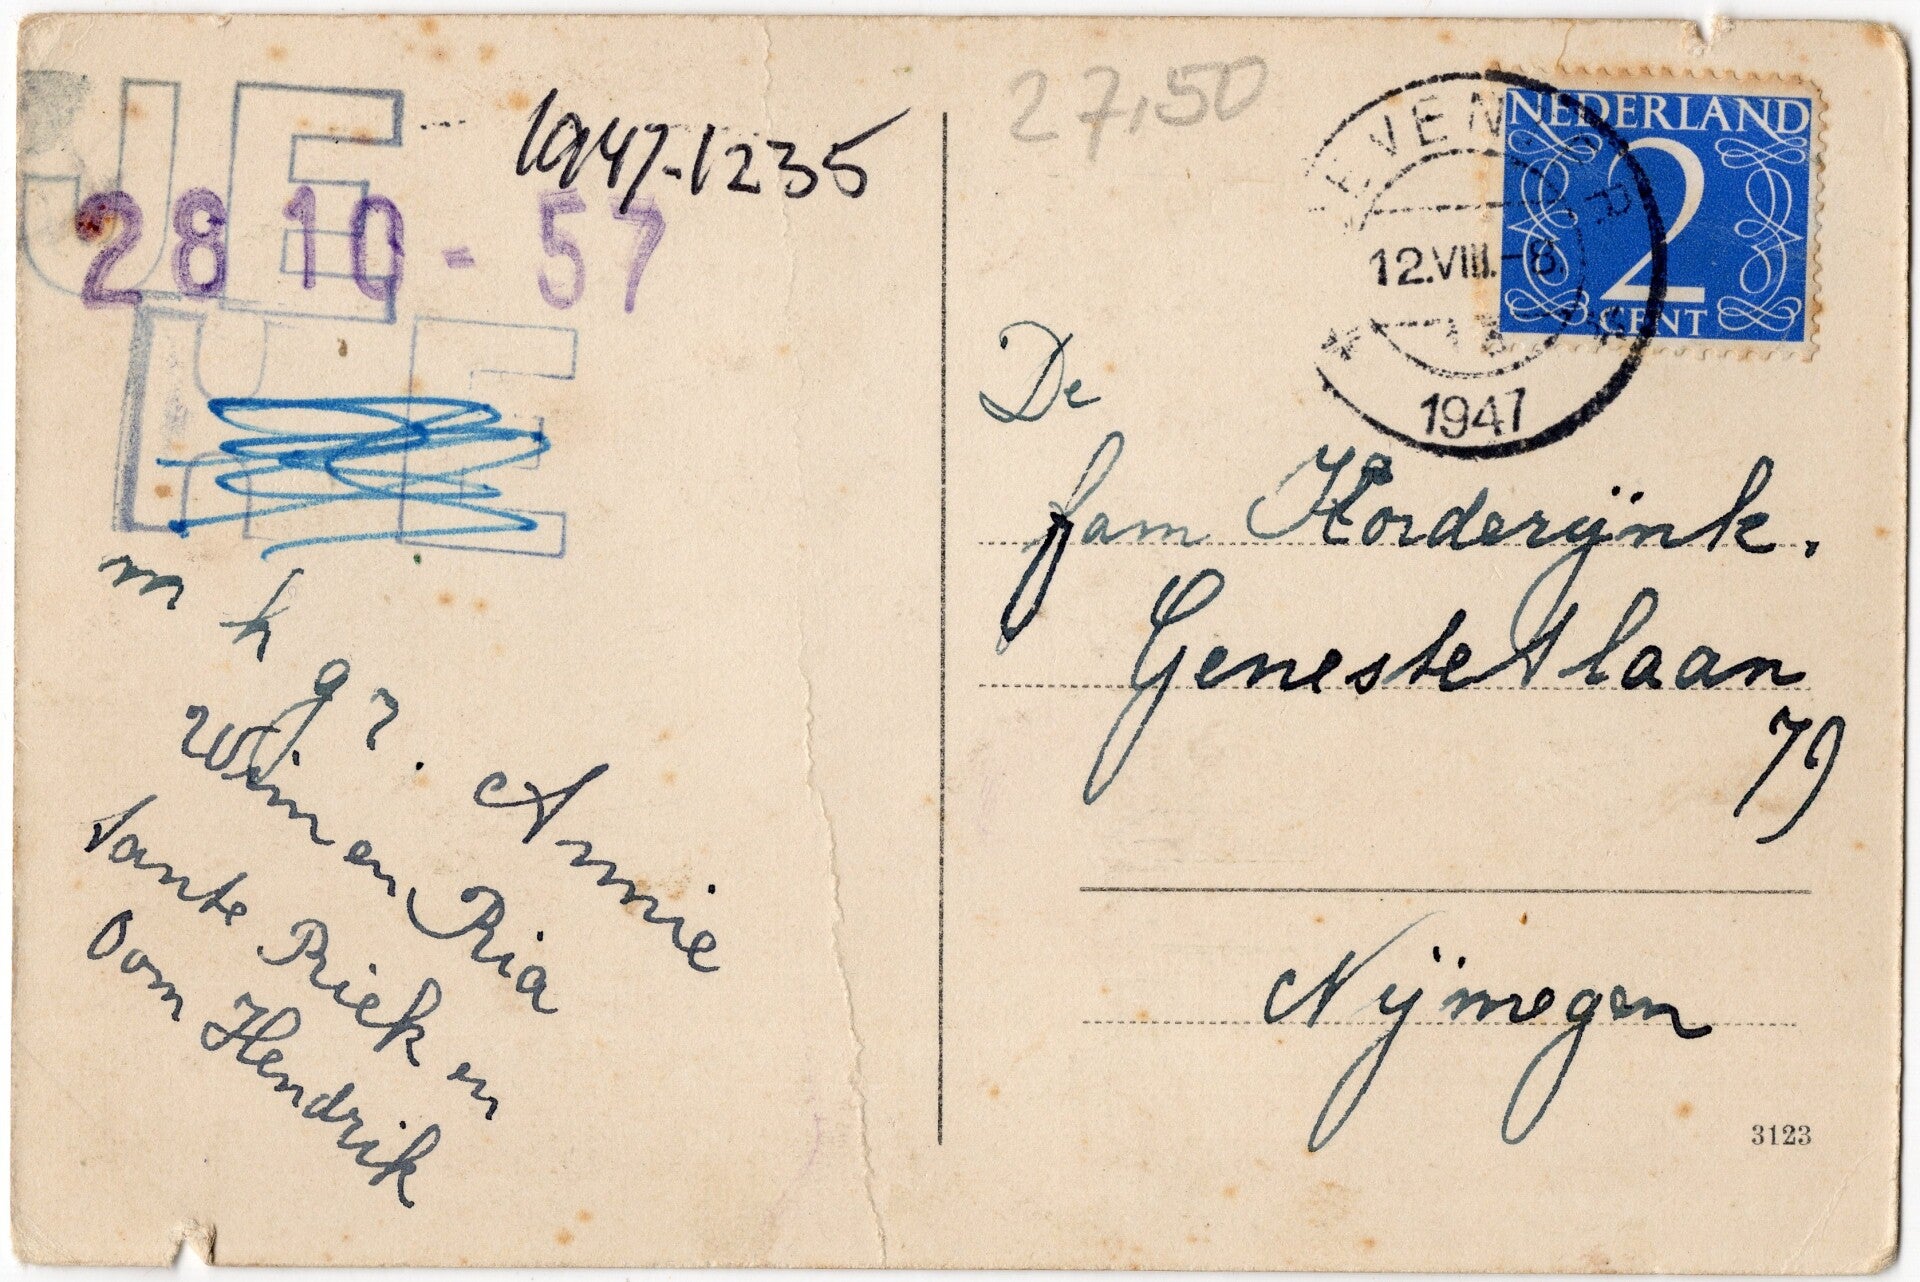 JE
28 10 - 57
1947-1235
27,50
NEDERLAND
2
CENT
12.VIII.-8.
1947
De
fam Horderijnk.
Genestetlaan
79
Nijmegen
3123
m h gr.
Annie
Wim en Ria
tante Riek en
Oom Hendrik